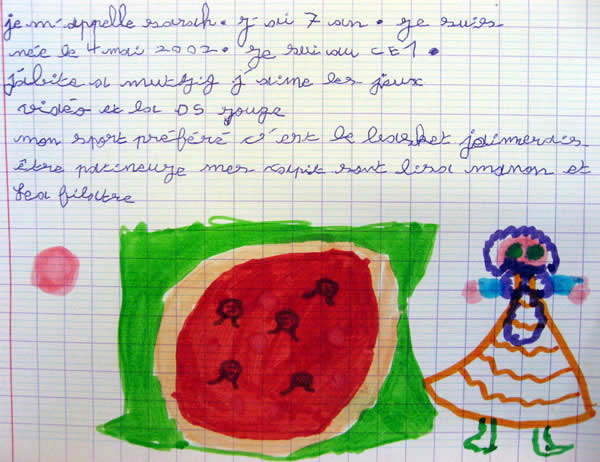 je m'appelle sarah. j'ai 7 an. je suis
née le 4 mai 2002. je sui au CE1.
j'abite a mutzig j'aime les jeux
vidéo et la DS rouge
mon sport préféré c'est le basket jaimerais
être patineuse mes copit sont lisa manon et